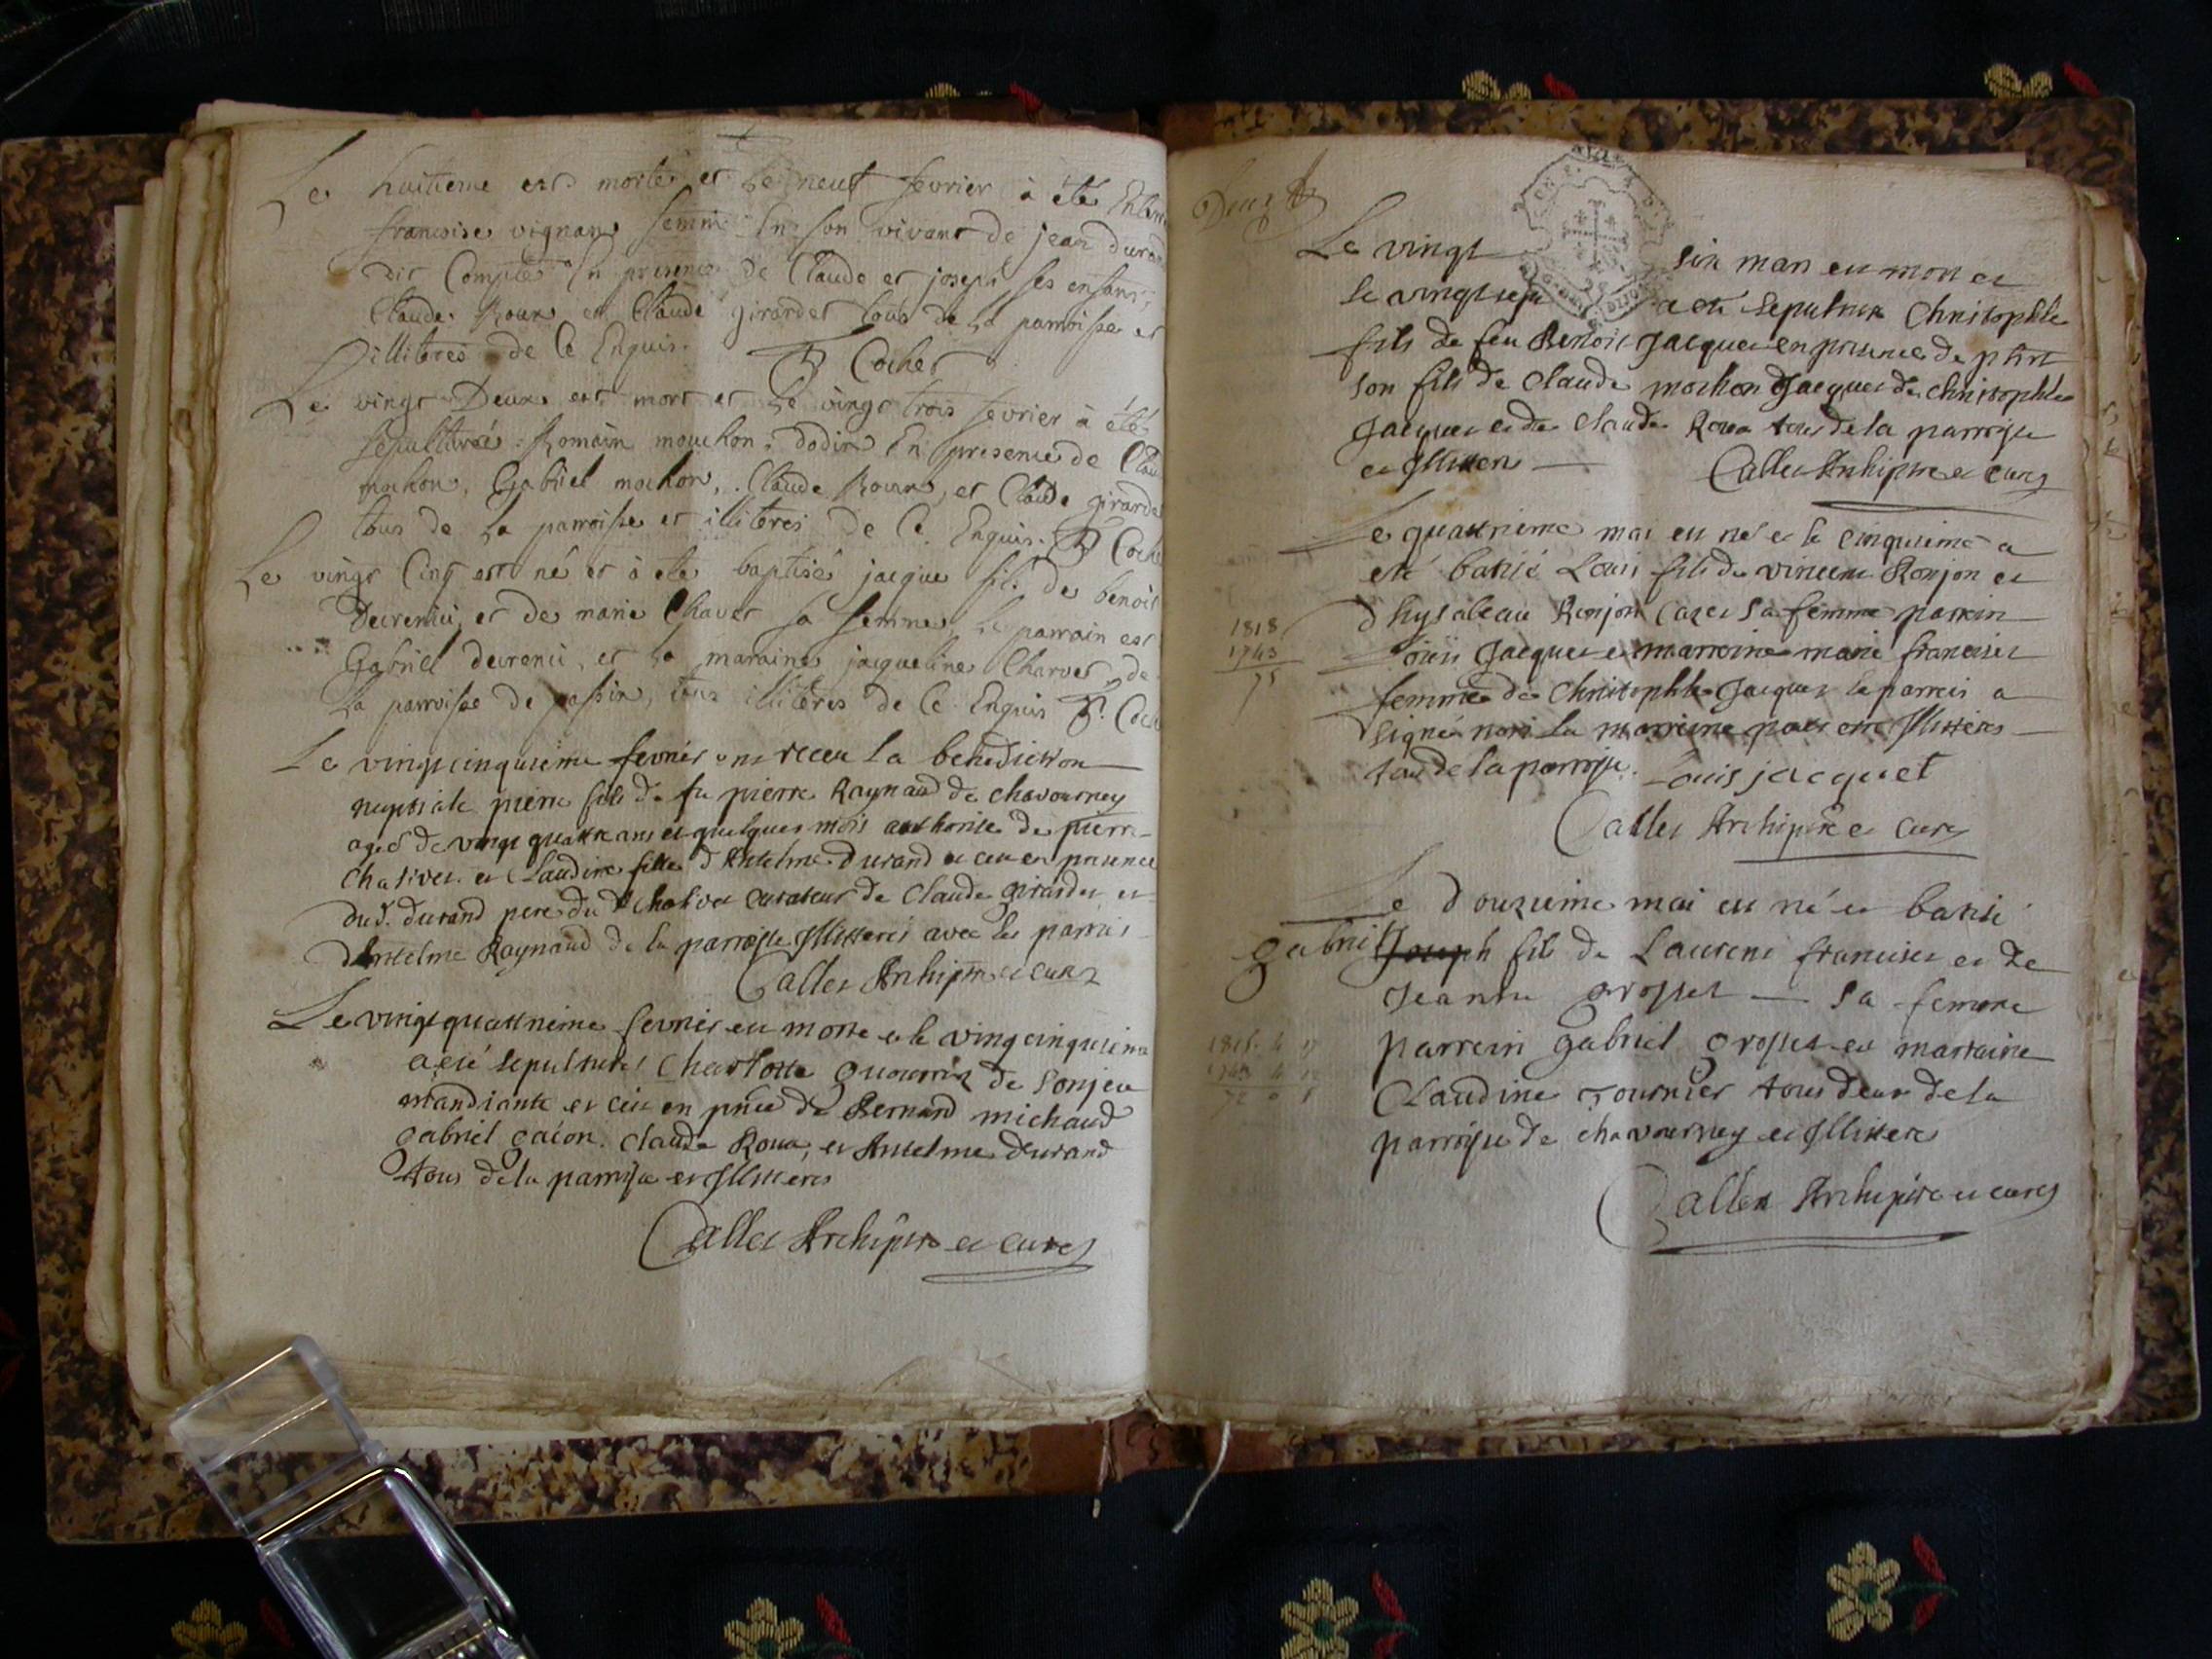 Le huitieme est morte et le neuf fevrier à été
francoise vignan femme En son vivant de jean durand
dit Compte En presence de Claude et joseph ses enfans,
Claude Roux et Claude girardet tous de la parroisse et
illiteres de ce Enquis. Cochet
Le vingt Deux est mort et le vingt trois fevrier à été
sepulturé Romain mouchon dodin En presence de
mochon, Gabriel mochon, Claude Roux, et Claude girardet
tous de la parroisse et illiteres de ce Enquis.
Le vingt Cinq est né et à été baptisé jacque fils de benoit
et de marie Charvet sa femme, le parrain est
Gabriel et la maraine jacqueline Charvet de
la parroisse de passin, tous illiteres de ce Enquis
Le vingtcinquieme fevrier ont receu la benediction
nuptiale pierre fils de fu pierre Raynaud de chavourney
agé de vingt quattre ans et quelques mois authorisé de pierre
Chalivet et Claudine fille d'Antelme durand et ceu en presence
dud. durand pere du d Chalivet curateur de Claude girardet et
d'Antelme Raynaud de la parroisse Illitteres avec les parties
Callet Archiptre et curé
Le vingtquattrieme fevrier est morte et le vingtcinquieme
a esté sepulturée Charlotte de Sonjeu
mandiante et ceu en pnce de Bernard michaud
gabriel gacon. claude Roux, et Antelme durand
tous de la parroisse et Illitteres
Callet Archiptre et curé
Le vingt six mars est mort et
le vingtsept a eté sepulturé Christophle
fils de feu Benoit Jacquet en presence de
son fils de Claude mochon Jacquet de christophle
Jacquet et de claude Roux tous de la parroisse
et Illitteres Callet Archiptre et curé
Le quattrieme mai est né et le cinquieme a
esté batisé Louis fils de vincent Ronjon et
d'hysabeau Ronjon Cazet sa femme parrein
1818
1743
75
Louis Jacquet et marreine marie franciset
femme de Christophle Jacquet le parrein a
signé non la marreine pour etre Illitteres
tous de la parroisse. Louis jacquet
Callet Archiptre et curé
Le douzieme mai est né et batisé
gabriel Joseph fils de Laurent franciset et de
Jeanne grosset sa femme
parrein gabriel grosset et marraine
Claudine Tournier tous deux de la
parroisse de chavourney et Illitteres
Callet Archiptre et curé